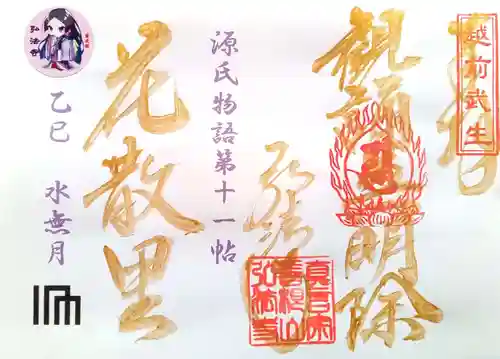 越前武生
明除
弘法寺
真言宗
弘法寺
源氏物語第十一帖
花散里
弘法寺
乙巳 水無月